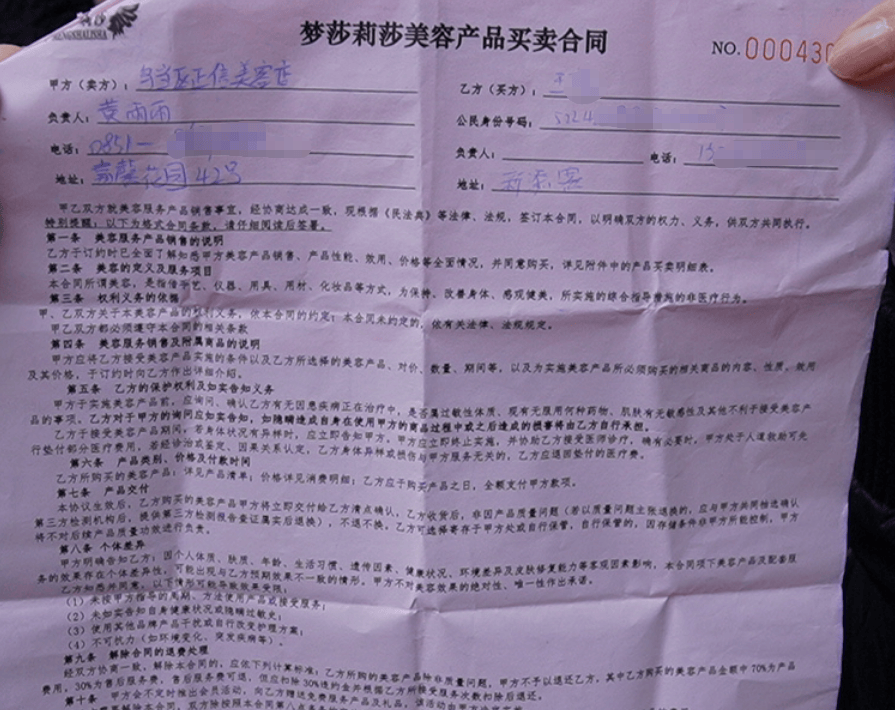 梦莎莉莎美容产品买卖合同
NO.000430
甲方（卖方）：乌当区正信美容店
乙方（买方）：王
负责人：黄雨雨
公民身份号码：5224
电话：0851-
负责人： 电话：15
地址：嘉馨花园42号
地址：新添寨
甲乙双方就美容服务产品销售事宜，经协商达成一致，现根据《民法典》等法律、法规，签订本合同，以明确双方的权力、义务，供双方共同执行。
特别提醒：以下为格式合同条款，请仔细阅读后签署。
第一条 美容服务产品销售的说明
乙方于订约时已全面了解知悉甲方美容产品销售、产品性能、效用、价格等全面情况，并同意购买，详见附件中的产品买卖明细表。
第二条 美容的定义及服务项目
本合同所谓美容，是指借手艺、仪器、用具、用材、化妆品等方式，为保持、改善身体、感观健美，所实施的综合指导措施的非医疗行为。
第三条 权利义务的依据
甲、乙双方关于本美容产品的权利义务，依本合同的约定；本合同未约定的，依有关法律、法规规定。
甲乙双方都必须遵守本合同的相关条款
第四条 美容服务销售及附属商品的说明
甲方应将乙方接受美容产品实施的条件以及乙方所选择的美容产品、对价、数量、期间等，以及为实施美容产品所必须购买的相关商品的内容、性质、效用
及其价格，于订约时向乙方作出详细介绍。
第五条 乙方的保护权利及如实告知义务
甲方于实施美容产品前，应询问、确认乙方有无因患疾病正在治疗中，是否属过敏性体质、现有无服用何种药物、肌肤有无敏感性及其他不利于接受美容产
品的事项。乙方对于甲方的询问应如实告知，如隐瞒造成自身在使用甲方的商品过程中或之后造成的损害将由乙方自行承担。
乙方于接受美容产品期间，若身体状况有异样时，应立即告知甲方，甲方应立即终止实施，并协助乙方接受医师诊疗，确有必要时，甲方处于人道救助可先
行垫付部分医疗费用，若经诊治或鉴定、因果关系认定，乙方身体异样或损伤与甲方服务无关的，乙方应退回垫付的医疗费。
第六条 产品类别、价格及付款时间
乙方所购买的美容产品：详见产品清单；价格详见消费明细；乙方应于购买产品之日，全额支付甲方款项。
第七条 产品交付
本协议生效后，乙方购买的美容产品甲方将立即交付给乙方清点确认，乙方收货后，非因产品质量问题（若以质量问题主张退换的，应与甲方共同相选确认
第三方检测机构后，提供第三方检测报告查证属实后退换），不退不换，乙方可选择寄存于甲方处或自行保管，自行保管的，因存储条件非甲方所能控制，甲方
将不对后续产品质量功效进行负责。
第八条 个体差异
甲方明确告知乙方：因个人体质、肤质、年龄、生活习惯、遗传因素、健康状况、环境差异及皮肤修复能力等客观因素影响，本合同项下美容产品及配套服
务的效果存在个体差异性，可能出现与乙方预期效果不一致的情形，甲方不对美容效果的绝对性、唯一性作出承诺。
乙方知悉并同意，以下情形可能导致效果受限：
（1）未按甲方指导的周期、方法使用产品或接受服务；
（2）未如实告知自身健康状况或隐瞒过敏史；
（3）使用其他品牌产品干扰或自行改变护理方案；
（4）不可抗力（如环境变化，突发疾病等）。
第九条 解除合同的退费处理
经双方协商一致，解除本合同的，应依下列计算标准：乙方所购的美容产品除非质量问题，甲方不予以退还乙方，其中乙方购买的美容产品金额中70%为产品
费用，30%为售后服务费，售后服务费可退，但应扣除30%违约金并根据乙方所接受服务次数扣除后退还。
第十条 甲方会不定时推出会员活动，向乙方赠送免费服务产品及礼品，该活动由甲方